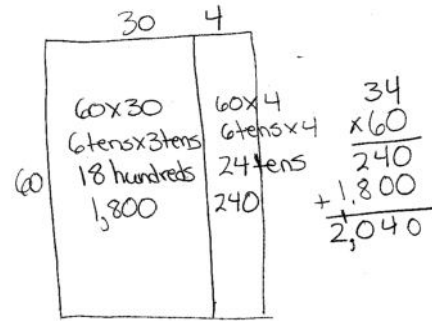 30 4
60
60x30
6tensx3tens
18 hundreds
1,800
60x4
6tensx4
24tens
240
34
x60
240
+1,800
2,040